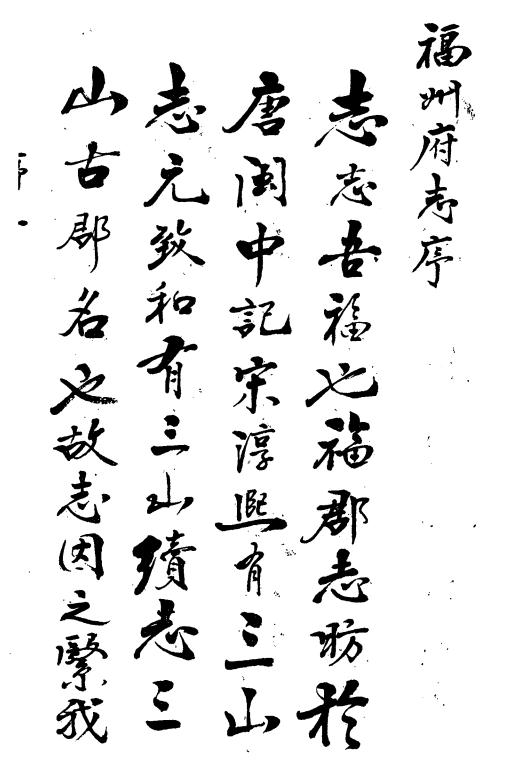 福州府志序
志志吾福也福郡志昉於
唐閩中記宋淳熙有三山
志元致和有三山續志三
山古郡名也故志因之繄我
序 一